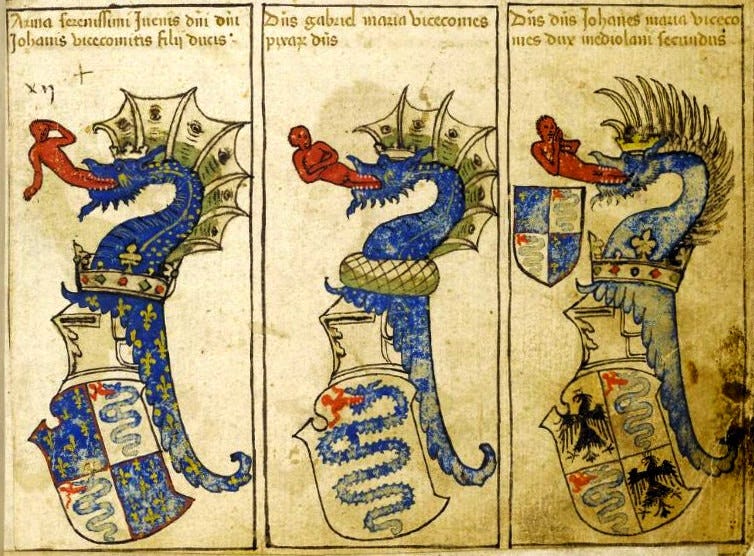 Arma serenissimi Juenis dni dni
Johanis vicecomitis filij ducis
xij
Dns gabriel maria vicecomes
pixar dns
Dns dns Johanes maria viceco
mes dux mediolani secundus